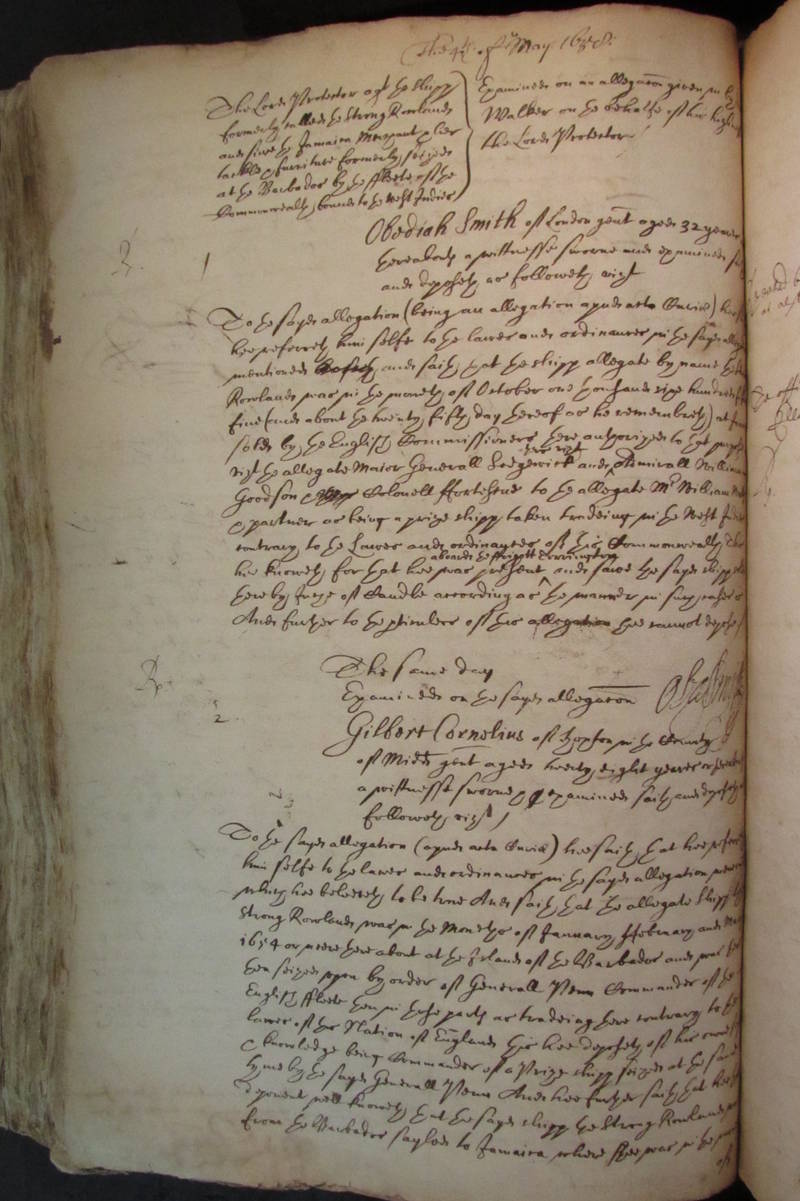 The 4th of May 1658.
The Lord Protector agt the shipp
formerly called the Strong Rowland
and since the Jamaica Merchant, her
tackle & furniture formerly seized
at the Barbados by the ffleete of the
Commonwealth, bound to the West Indies
Examined on an allegacon given in by
Walker on the behalfe of his highnes
the Lord Protector
Obediah Smith of London gent aged 32 yeares
thereabouts a wittnesse sworne and examined
and deposeth as followeth vizt
1
To the sayd allegation (being an allegation apud acta
hee referreth him selfe to the lawes and ordinances in the sayd
mentioned and saith that the shipp allegate by name the
Rowland was in the moneth of October one thousand sixe hundred
five (and about the twenty fifth day thereof as he remembreth) at
sold by the English Commissioners there authorized to that
vizt the allegate Maior Generall Sedgewick and Admirall William
Goodson & Colonell ffortescue to the allegate Mr William
& partner as being a prize shipp taken tradeing in the West Indies
contrary to the Lawes and ordinances of this Commonwealth, This
aboard the ffrigott Torrington
hee knoweth for that hee was present and sawe the sayd shipp
thereby Inch of Candle according as the manner in such cases
And further to the perticulers of this allegation hee cannot depose
The same day
Examined on the sayd allegacon
2
Gilbert Cornelius of in the County
of Midds gent aged twenty eight yeares or
a wittnesse sworne & examined saith and
followeth vizt
To the sayd allegation (apud acta) hee saith, that hee
him selfe to the lawes and ordinances in the sayd allegation
which hee beleeveth to be true And saith that the allegate Shipp the
Strong Rowland was in the Moneths of January ffebruary and
1654 or neere there about at the Island of the Barbados and was
then seized upon by order of Generall Penn Commander of the
English ffleete then in those parts as tradeing there contrary to the
lawes of this Nation of England This hee deposeth of his owne
knowledge being Commander of a Prize shipp seized at the same
tyme by the sayd Generall Penn And hee further saith that hee this
deponent well knoweth that the sayd shipp the Strong Rowland
from the Barbados sayled to Jamaica where shee was in the
of